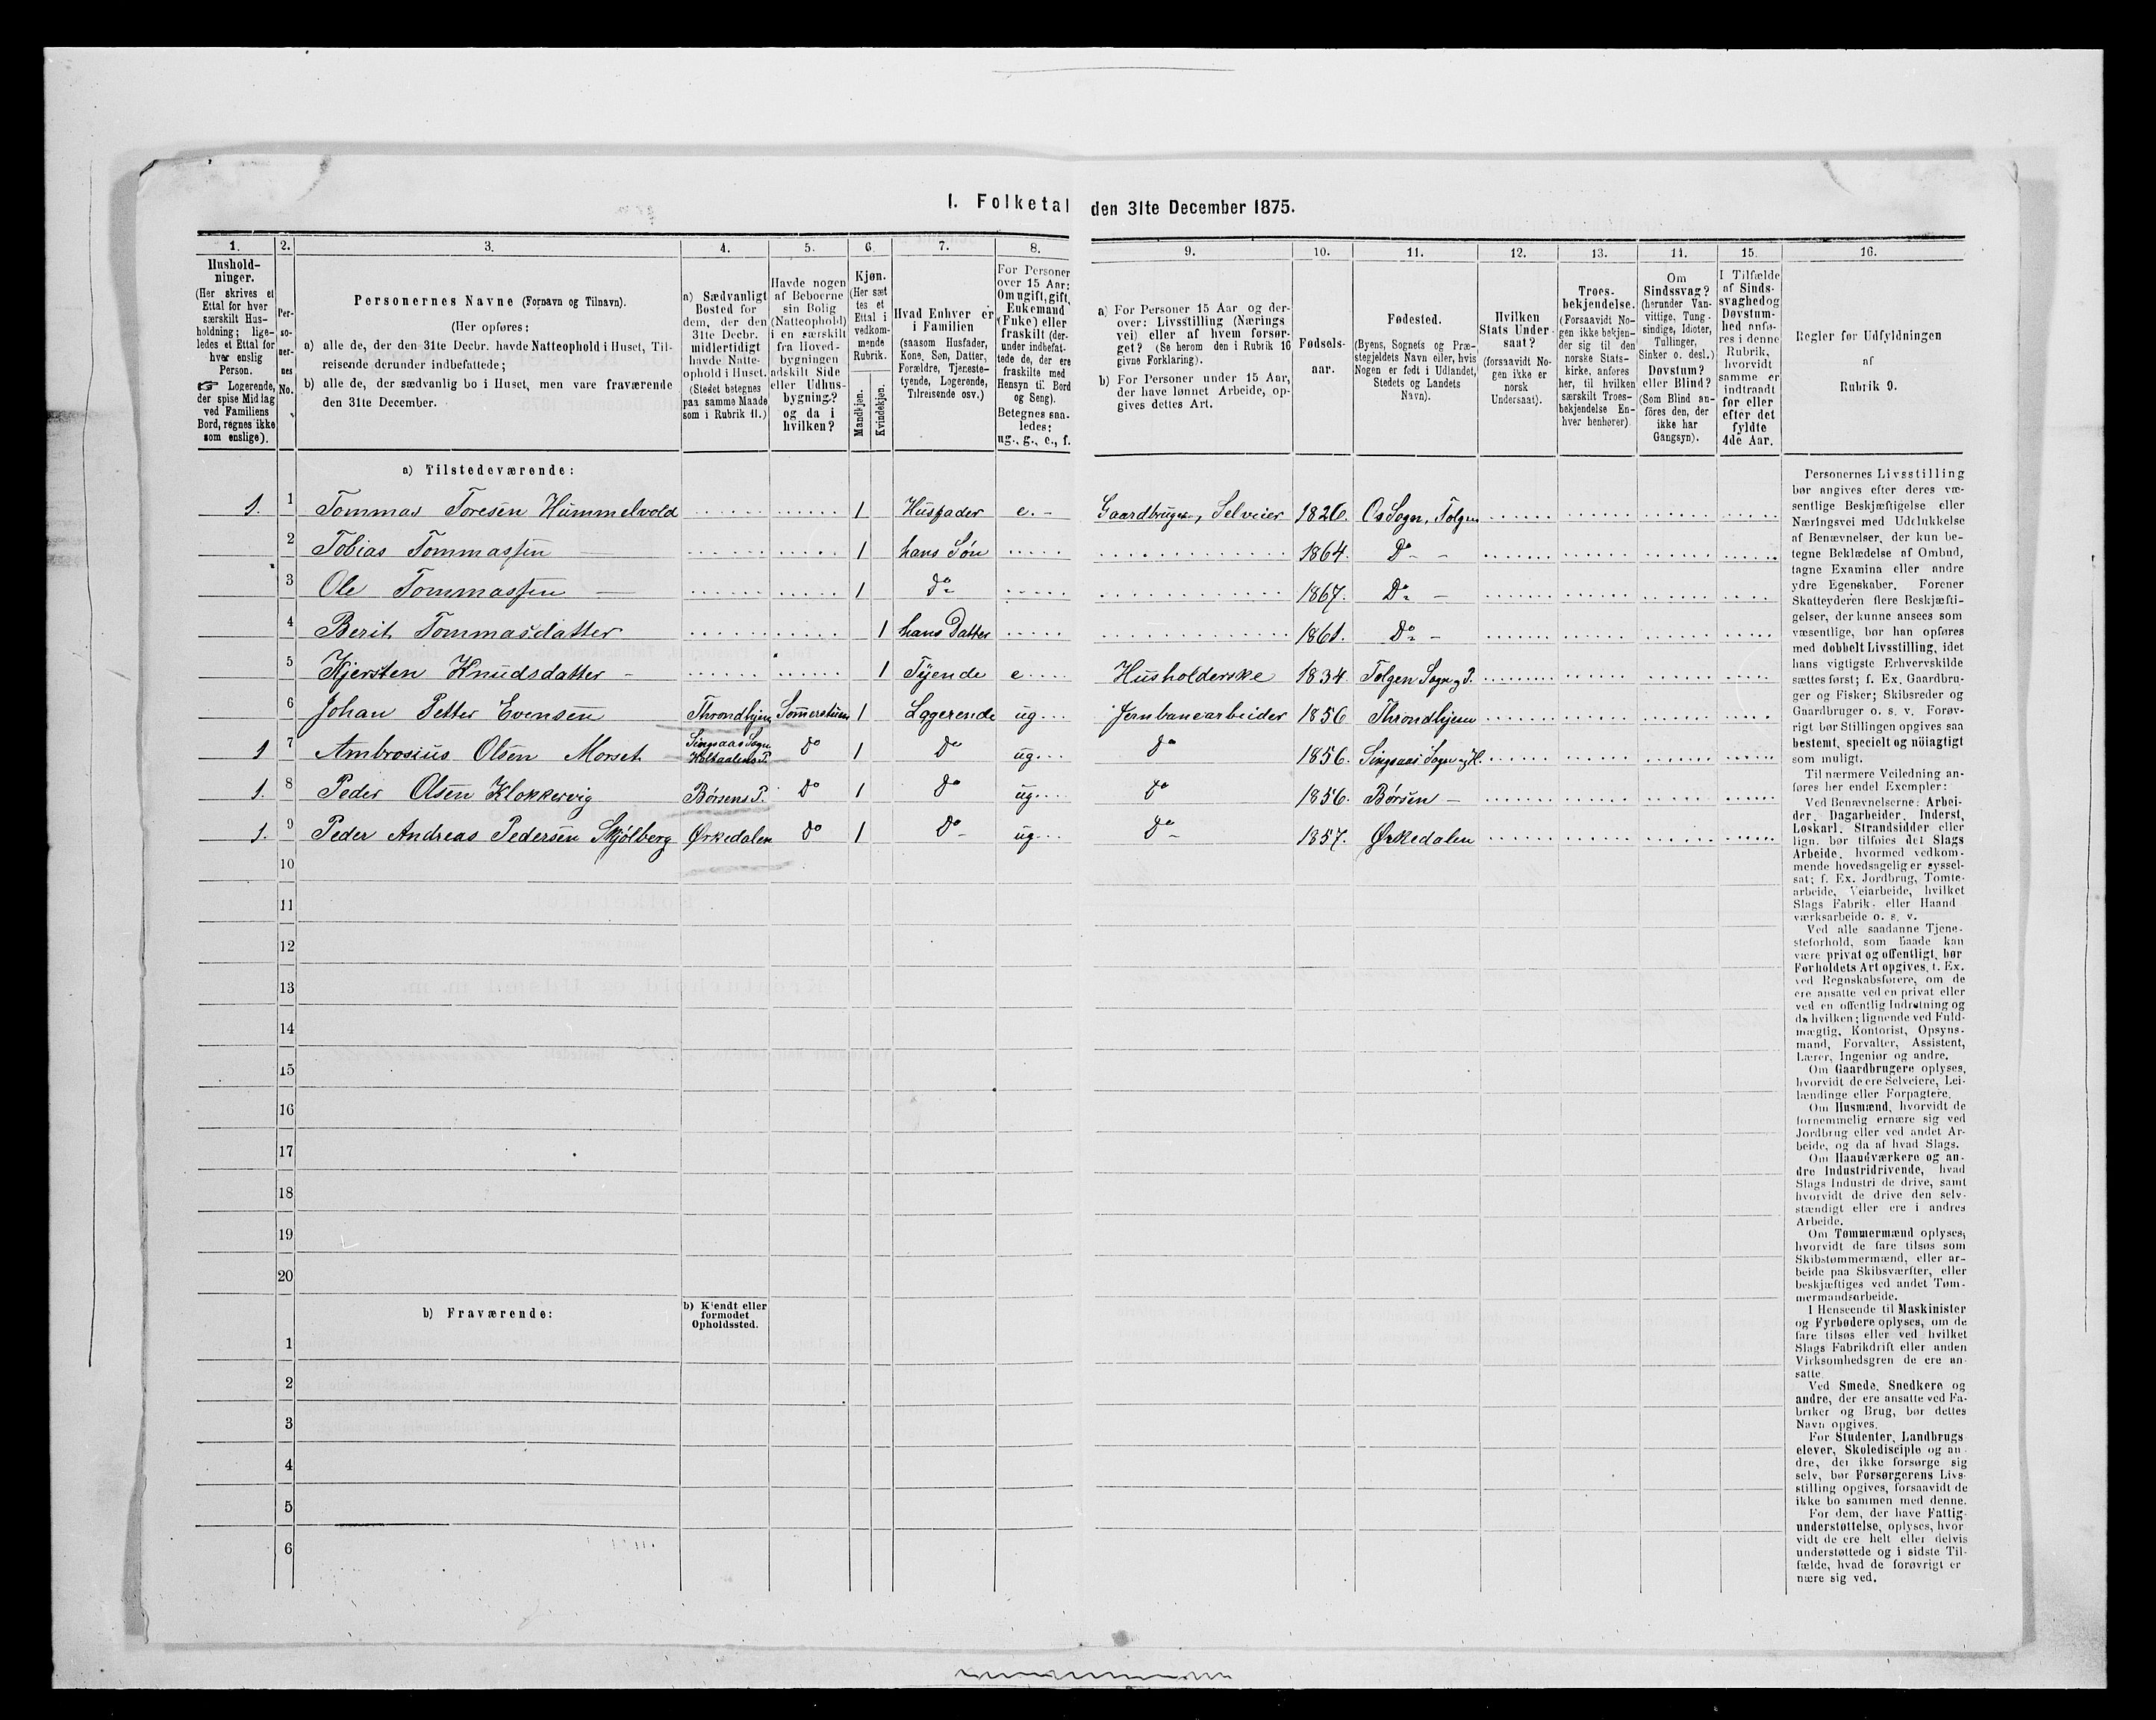 1. Folketal den 31te December 1875.
1. 2. 3. 4. 5. 6. 7. 8. 9. 10. 11. 12. 13. 14. 15. 16.
Hushold-
ninger.
(Her skrives et
Ettal for hver
særskilt Hus-
holdning; lige-
ledes et Ettal for
hver enslig
Person.
☞ Logerende,
der spise Middag
ved Familiens
Bord, regnes ikke
som enslige).
Per-
so-
ner-
nes
No.
Personernes Navne (Fornavn og Tilnavn).
(Her opføres:
a) alle de, der den 31te Decbr. havde Natteophold i Huset, Til-
reisende derunder indbefattede;
b) alle de, der sædvanlig bo i Huset, men vare fraværende
den 31te December.
a) Sædvanligt
Bosted for
dem, der den
31te Decbr.
midlertidigt
havde Natte-
ophold i Huset.
(Stedet betegnes
paa samme Maade
som i Rubrik 11.)
Havde nogen
af Beboerne
sin Bolig
(Natteophold)
i en særskilt
fra Hoved-
bygningen
adskilt Side
eller Udhus-
bygning?
og da i
hvilken?
Kjøn.
(Her sæt
tes et
Ettal i
vedkom-
mende
Rubrik.
Mandkjøn.
Kvindekjøn.
Hvad Enhver er
i Familien
(saasom Husfader,
Kone, Søn, Datter,
Forældre, Tjeneste-
tyende, Logerende,
Tilreisende osv.)
For Personer
over 15 Aar:
Om ugift, gift,
Enkemand
(Enke) eller
fraskilt (der-
under indbefat-
tede de, der ere
fraskilte med
Hensyn til Bord
og Seng).
Betegnes saa-
ledes:
ug., g., e., f.
a) For Personer 15 Aar og der-
over: Livsstilling (Nærings
vei) eller af hvem forsør-
get? (Se herom den i Rubrik 16
givne Forklaring).
b) For Personer under 15 Aar,
der have lønnet Arbeide, op-
gives dettes Art.
Fødsels-
aar.
Fødested.
(Byens, Sognets og Præ-
stegjeldets Navn eller, hvis
Nogen er født i Udlandet,
Stedets og Landets
Navn).
Hvilken
Stats Under-
saat?
(forsaavidt No-
gen ikke er
norsk
Undersaat).
Troes-
bekjendelse.
(Forsaavidt No-
gen ikke bekjen-
der sig til den
norske Stats-
kirke, anføres
her, til hvilken
særskilt Troes-
bekjendelse En-
hver henhører).
Om
Sindssvag?
(herunder Van-
vittige, Tung-
sindige, Idioter,
Tullinger,
Sinker o. desl.)
Døvstum?
eller Blind?
(Som Blind an-
føres den, der
ikke har
Gangsyn).
I Tilfælde
af Sinds-
svaghed og
Døvstum-
hed anfø-
res i denne
Rubrik,
hvorvidt
samme er
indtraadt
før eller
efter det
fyldte
4de Aar.
Regler for Udfyldningen
af
Rubrik 9.
a) Tilstedeværende:
1. 1 Tommas Toresen Hummelvold 1 Husfader e. - Gaardbruger, Selveier 1826. Os Sogn, Tolgen
2 Tobias Tommassen 1 hans Søn 1864. Do -
3 Ole Tommassen 1 do 1867. Do -
4 Berit Tommasdatter 1 hans Datter 1861. Do -
5 Kjersten Knudsdatter 1 Tyende e Husholderske 1834. Tolgen Sogn og P.
6 Johan Petter Evensen Throndhjem Sommerstuen 1 Logerende ug Jernbanearbeider 1856 Throndhjem
1 7 Ambrosius Olsen Morset Singsaas Sogn, Holtaalens P. do 1 do ug do 1856. Singsaas Sogn og H.
1. 8 Peder Olsen Klokkervig Børsens P. do 1 do ug do 1856. Børsen -
1. 9 Peder Andreas Pedersen Skjölberg Ørkedalen do 1 do ug do 1857. Ørkedalen
10
11
12
13
14
15
16
17
18
19
20
b) Fraværende:
b) Kjendt eller
formodet
Opholdssted.
1
2
3
4
5
6
Personernes Livsstilling
bør angives efter deres væ-
sentlige Beskjæftigelse eller
Næringsvei med Udelukkelse
af Benævnelser, der kun be-
tegne Beklædelse af Ombud,
tagne Examina eller andre
ydre Egenskaber. Forener
Skatteyderen flere Beskjæfti-
gelser, der kunne ansees som
væsentlige, bør han opføres
med dobbelt Livsstilling, idet
hans vigtigste Erhvervskilde
sættes først; f. Ex. Gaardbru-
ger og Fisker; Skibsreder og
Gaardbruger o. s. v. Forøv-
rigt bør Stillingen opgives saa
bestemt, specielt og nöiagtigt
som muligt.
Til nærmere Veiledning an-
føres her endel Exempler:
Ved Benævnelserne: Arbei-
der, Dagarbeider, Inderst,
Løskarl, Strandsidder eller
lign. bør tilføies det Slags
Arbeide, hvormed vedkom-
mende hovedsagelig er syssel-
sat; f. Ex. Jordbrug, Tomte-
arbeide, Veiarbeide, hvilket
Slags Fabrik- eller Haand-
værksarbeide o. s. v.
Ved alle saadanne Tjene-
steforhold, som baade kan
være privat og offentligt, bør
Forholdets Art opgives, t. Ex.
ved Regnskabsførere, om de
ere ansatte ved en privat eller
ved en offentlig Indretning og
da hvilken; lignende ved Fuld-
mægtig, Kontorist, Opsyns-
mand, Forvalter, Assistent,
Lærer, Ingeniør og andre.
Om Gaardbrugere oplyses,
hvorvidt de ere Selveiere, Lei-
lændinge eller Forpagtere.
Om Husmænd, hvorvidt de
fornemmelig ernære sig ved
Jordbrug eller ved andet Ar-
beide, og da af hvad Slags.
Om Haandværkere og an-
dre Industridrivende, hvad
Slags Industri de drive, samt
hvorvidt de drive den selv-
stændigt eller ere i andres
Arbeide.
Om Tømmermænd oplyses,
hvorvidt de fare tilsøs som
Skibstømmermænd, eller ar-
beide paa Skibsværfter, eller
beskjæftiges ved andet Tøm-
mermandsarbeide.
I Henseende til Maskinister
og Fyrbødere oplyses, om de
fare tilsøs eller ved hvilket
Slags Fabrikdrift eller anden
Virksomhedsgren de ere an-
satte.
Ved Smede, Snedkere og
andre, der ere ansatte ved Fa-
briker og Brug, bør dettes
Navn opgives.
For Studenter, Landbrugs
elever, Skoledisciple og an-
dre, der ikke forsørge sig
selv, bør Forsørgerens Livs-
stilling opgives, forsaavidt de
ikke bo sammen med denne.
For dem, der have Fattig-
understøttelse, oplyses, hvor
vidt de ere helt eller delvis
understøttede og i sidste Til-
fælde, hvad de forøvrigt er-
nære sig ved.